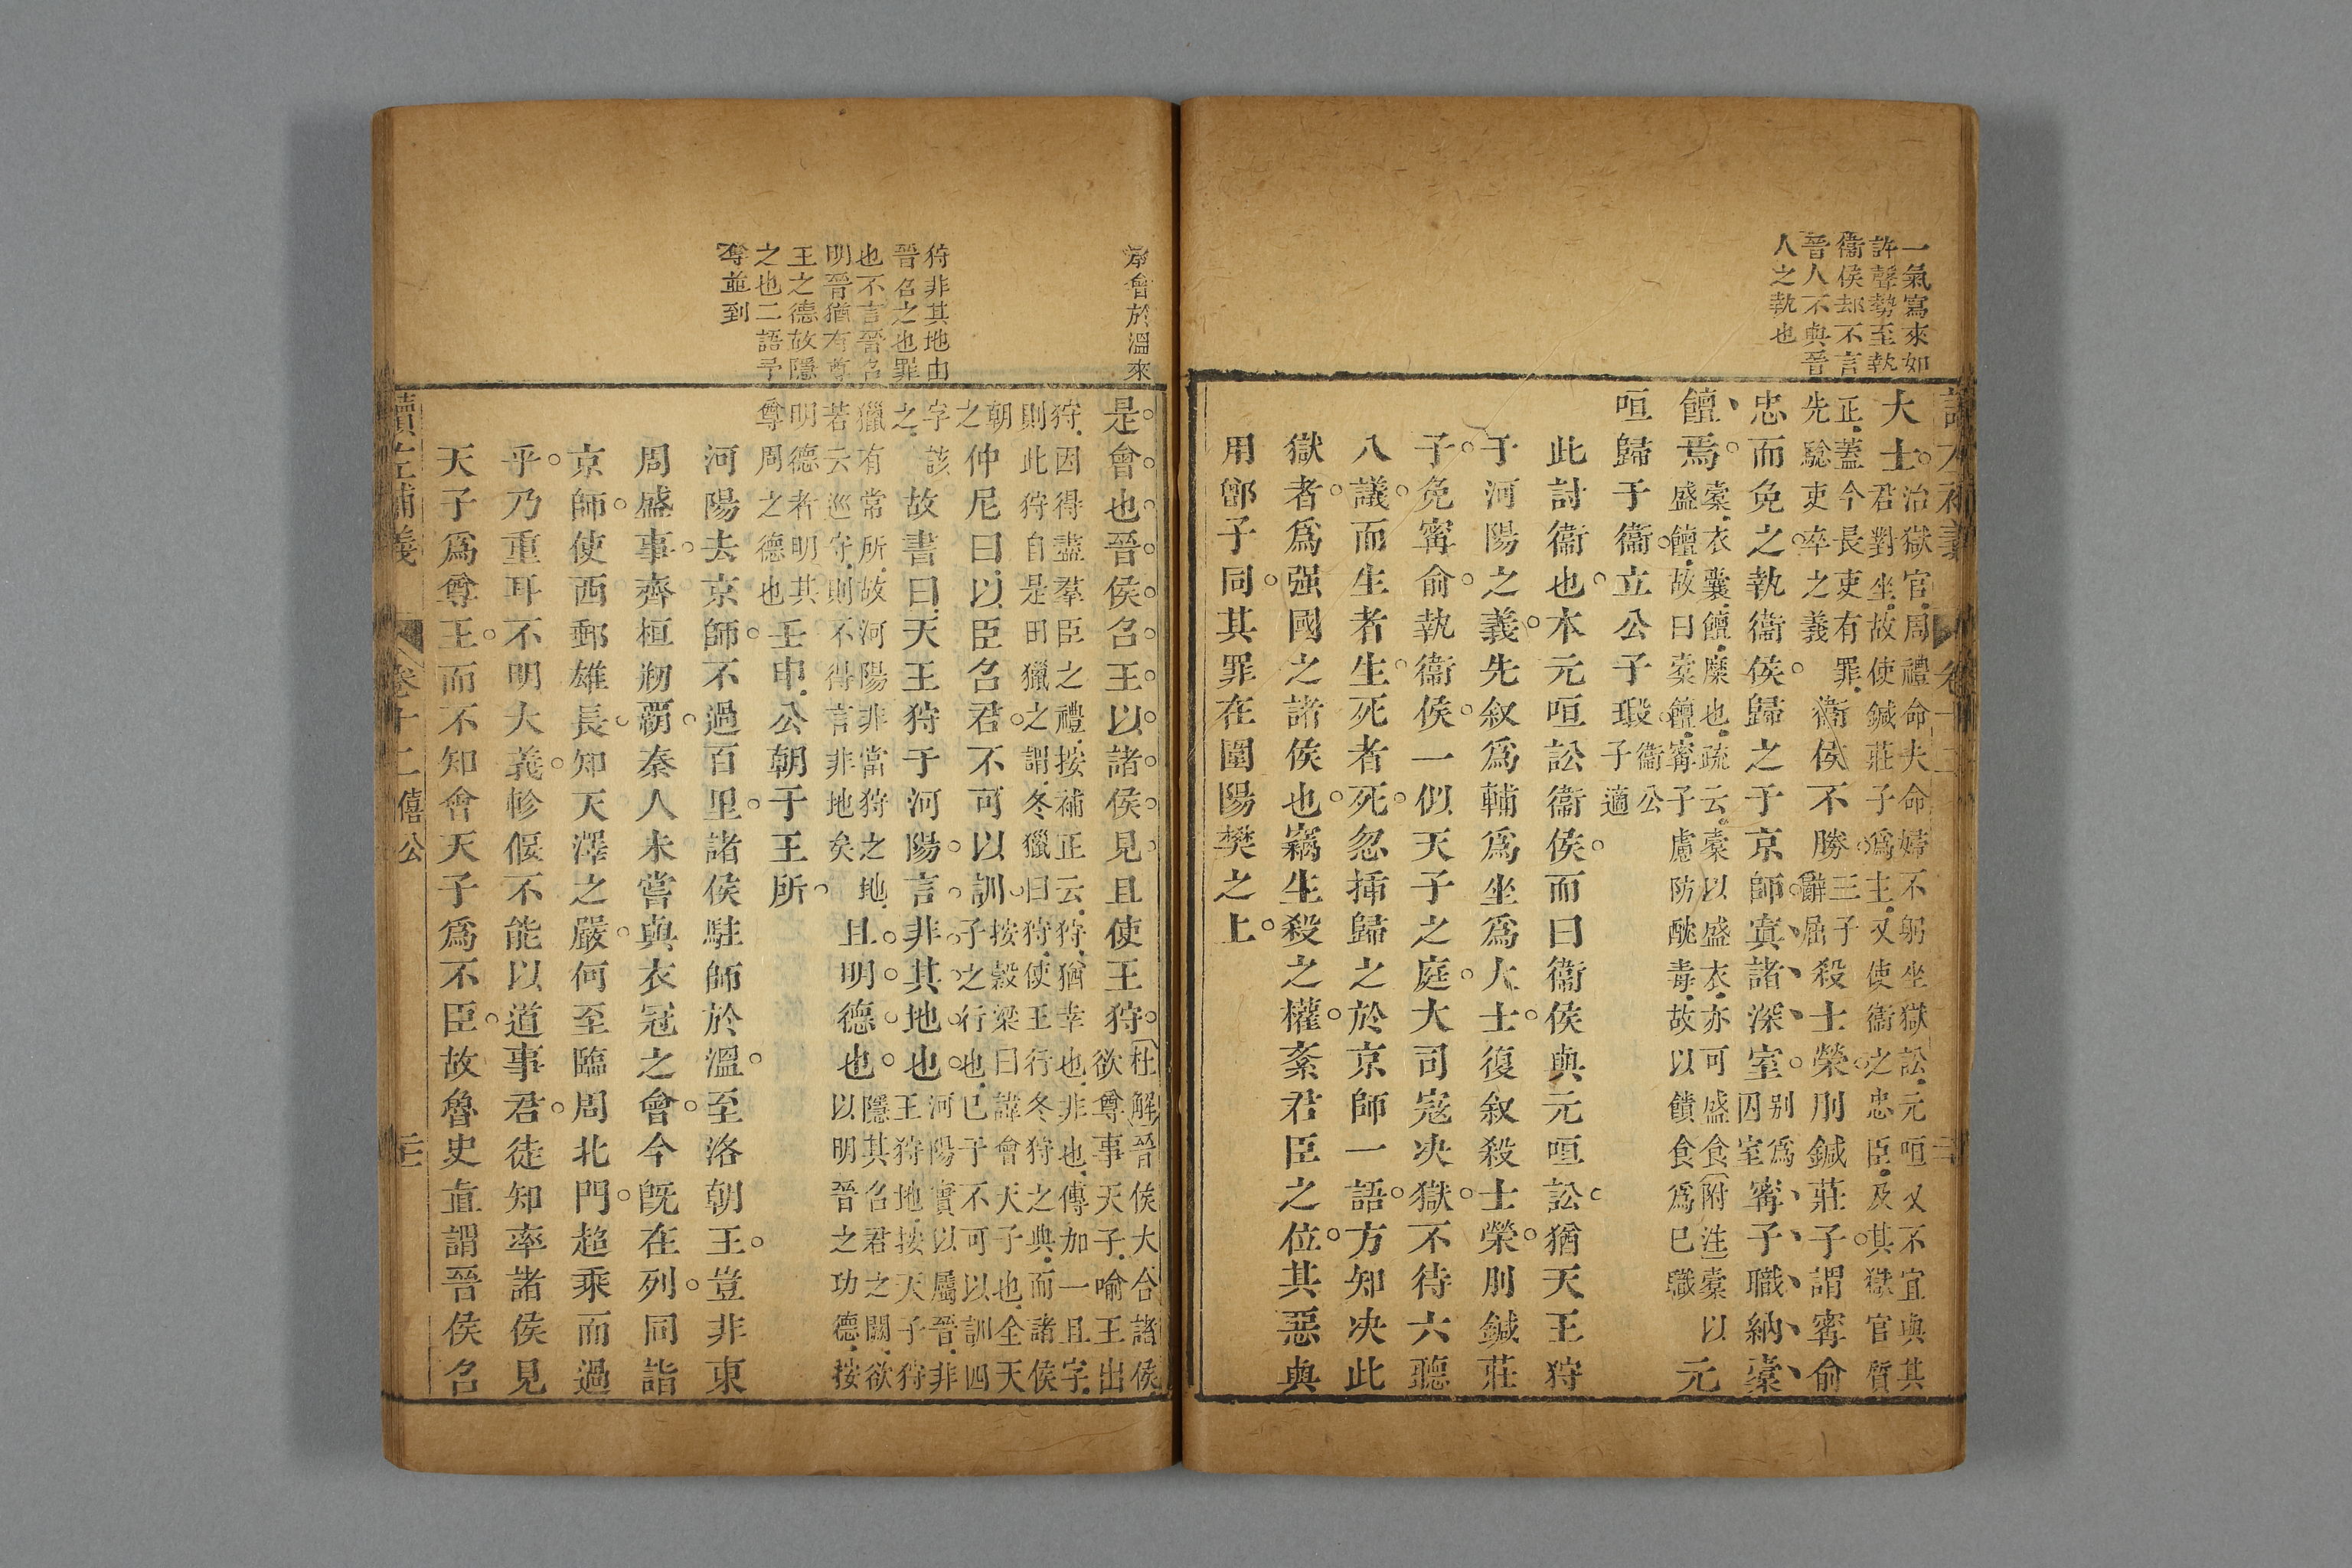 讀左補義
卷十二
一氣寫來如
許聲勢至執
衞侯却不言
晉人不與晉
人之執也
大士治獄官周禮命夫命婦不躬坐獄訟元咺又不宜與其
君對坐故使鍼莊子爲主又使衞之忠臣及其獄官質
正蓋今長吏有罪
先驗吏卒之義衞侯不勝三子
辭屈殺士榮刖鍼莊子謂甯俞
忠而免之執衞侯歸之于京師寘諸深室别爲
囚室甯子職納橐
饘焉橐衣囊饘糜也疏云橐以盛衣亦可盛食附注橐以
盛饘故曰橐饘甯子慮防酖毒故以饋食爲已職元
咺歸于衞立公子瑕衞公
子適
此討衞也本元咺訟衞侯而曰衞侯與元咺訟猶天王狩
于河陽之義先叙爲輔爲坐爲大士復叙殺士榮刖鍼莊
子免甯俞執衞侯一似天子之庭大司寇决獄不待六聽
八議而生者生死者死忽揷歸之於京師一語方知决此
獄者爲强國之諸侯也竊生殺之權紊君臣之位其惡與
用鄫子同其罪在圍陽樊之上
承會於溫來
狩非其地由
晉召之也罪
也不言晉召
明晉猶有尊
王之德故隱
之也二語予
奪並到
是會也晉侯召王以諸侯見且使王狩杜解晉侯大合諸侯
欲尊事天子喻王出
狩因得盡羣臣之禮按補正云狩猶幸也非也傳加一且字
則此狩自是田獵之謂冬獵曰狩使王行冬狩之典而諸侯
朝
之仲尼曰以臣召君不可以訓按穀梁曰諱會天子也全天
子之行也已于不可以訓四
字該
之故書曰天王狩于河陽言非其地也河陽實以屬晉非
王狩地按天子狩
獵有常所故河陽非當狩之地
若云巡守則不得言非地矣且明德也隱其召君之闕欲
以明晉之功德按
明德者明其
尊周之德也壬申公朝于王所
河陽去京師不過百里諸侯駐師於溫至洛朝王豈非東
周盛事齊桓剏覇秦人未嘗與衣冠之會今旣在列同詣
京師使西鄙雄長知天澤之嚴何至臨周北門超乘而過
乎乃重耳不明大義軫偃不能以道事君徒知率諸侯見
天子爲尊王而不知會天子爲不臣故魯史直謂晉侯召
讀左補義
卷十二僖公